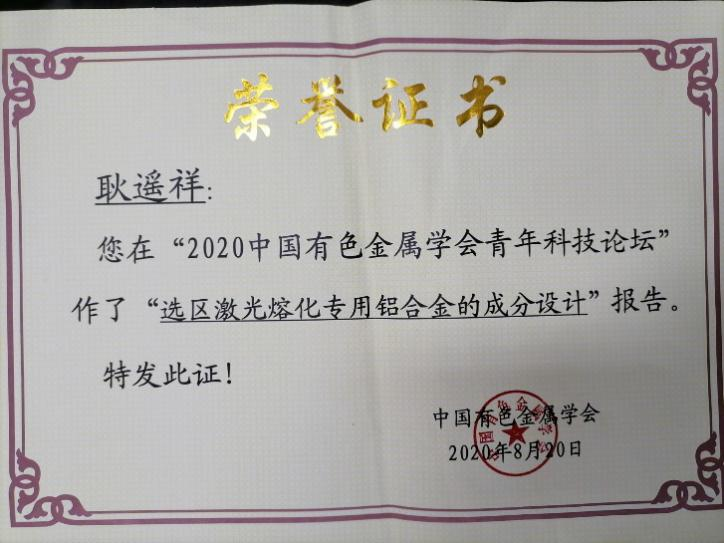 荣誉证书
耿遥祥:
您在“2020中国有色金属学会青年科技论坛”
作了“选区激光熔化专用铝合金的成分设计”报告。
特发此证!
中国有色金属学会
2020年8月20日
中国有色金属学会